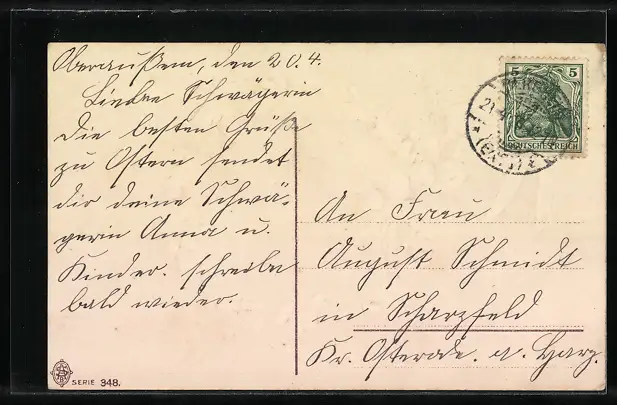 Oberaußem, den 20.4.
Liebe Schwägerin
die besten Grüße
zu Ostern sendet
dir deine Schwä-
gerin Anna u.
Kinder. schreibe
bald wieder.
5 5
DEUTSCHES REICH
21.4
An Frau
August Schmidt
in Scharzfeld
Kr. Osterode. a. Harz.
SERIE 348.